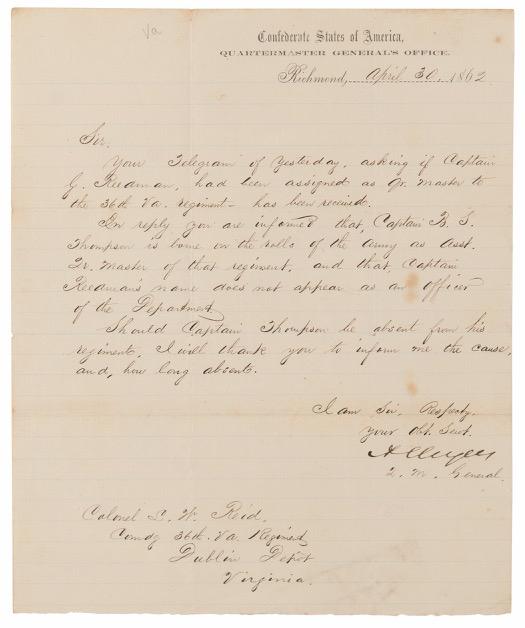 Va
Confederate States of America,
QUARTERMASTER GENERAL'S OFFICE.
Richmond, April 30, 1862
Sir.
Your Telegram of Yesterday, asking if Captain
G. Reedman, had been assigned as Qr. Master to
the 36th Va. Regiment — has been received.
In reply you are informed that, Captain B. S.
Thompson is borne on the rolls of the army as asst.
Qr. Master of that regiment, and that, Captain
Reedman's name does not appear as an officer
of the Department.
Should Captain Thompson be absent from his
regiment, I will thank you to inform me the cause,
and, how long absent.
I am Sir. Respcty.
your Obt. Servt.
A C Myers
Q. M. General.
Colonel L. W. Reid.
Comdg 36th. Va Regiment
Dublin Depot
Virginia.